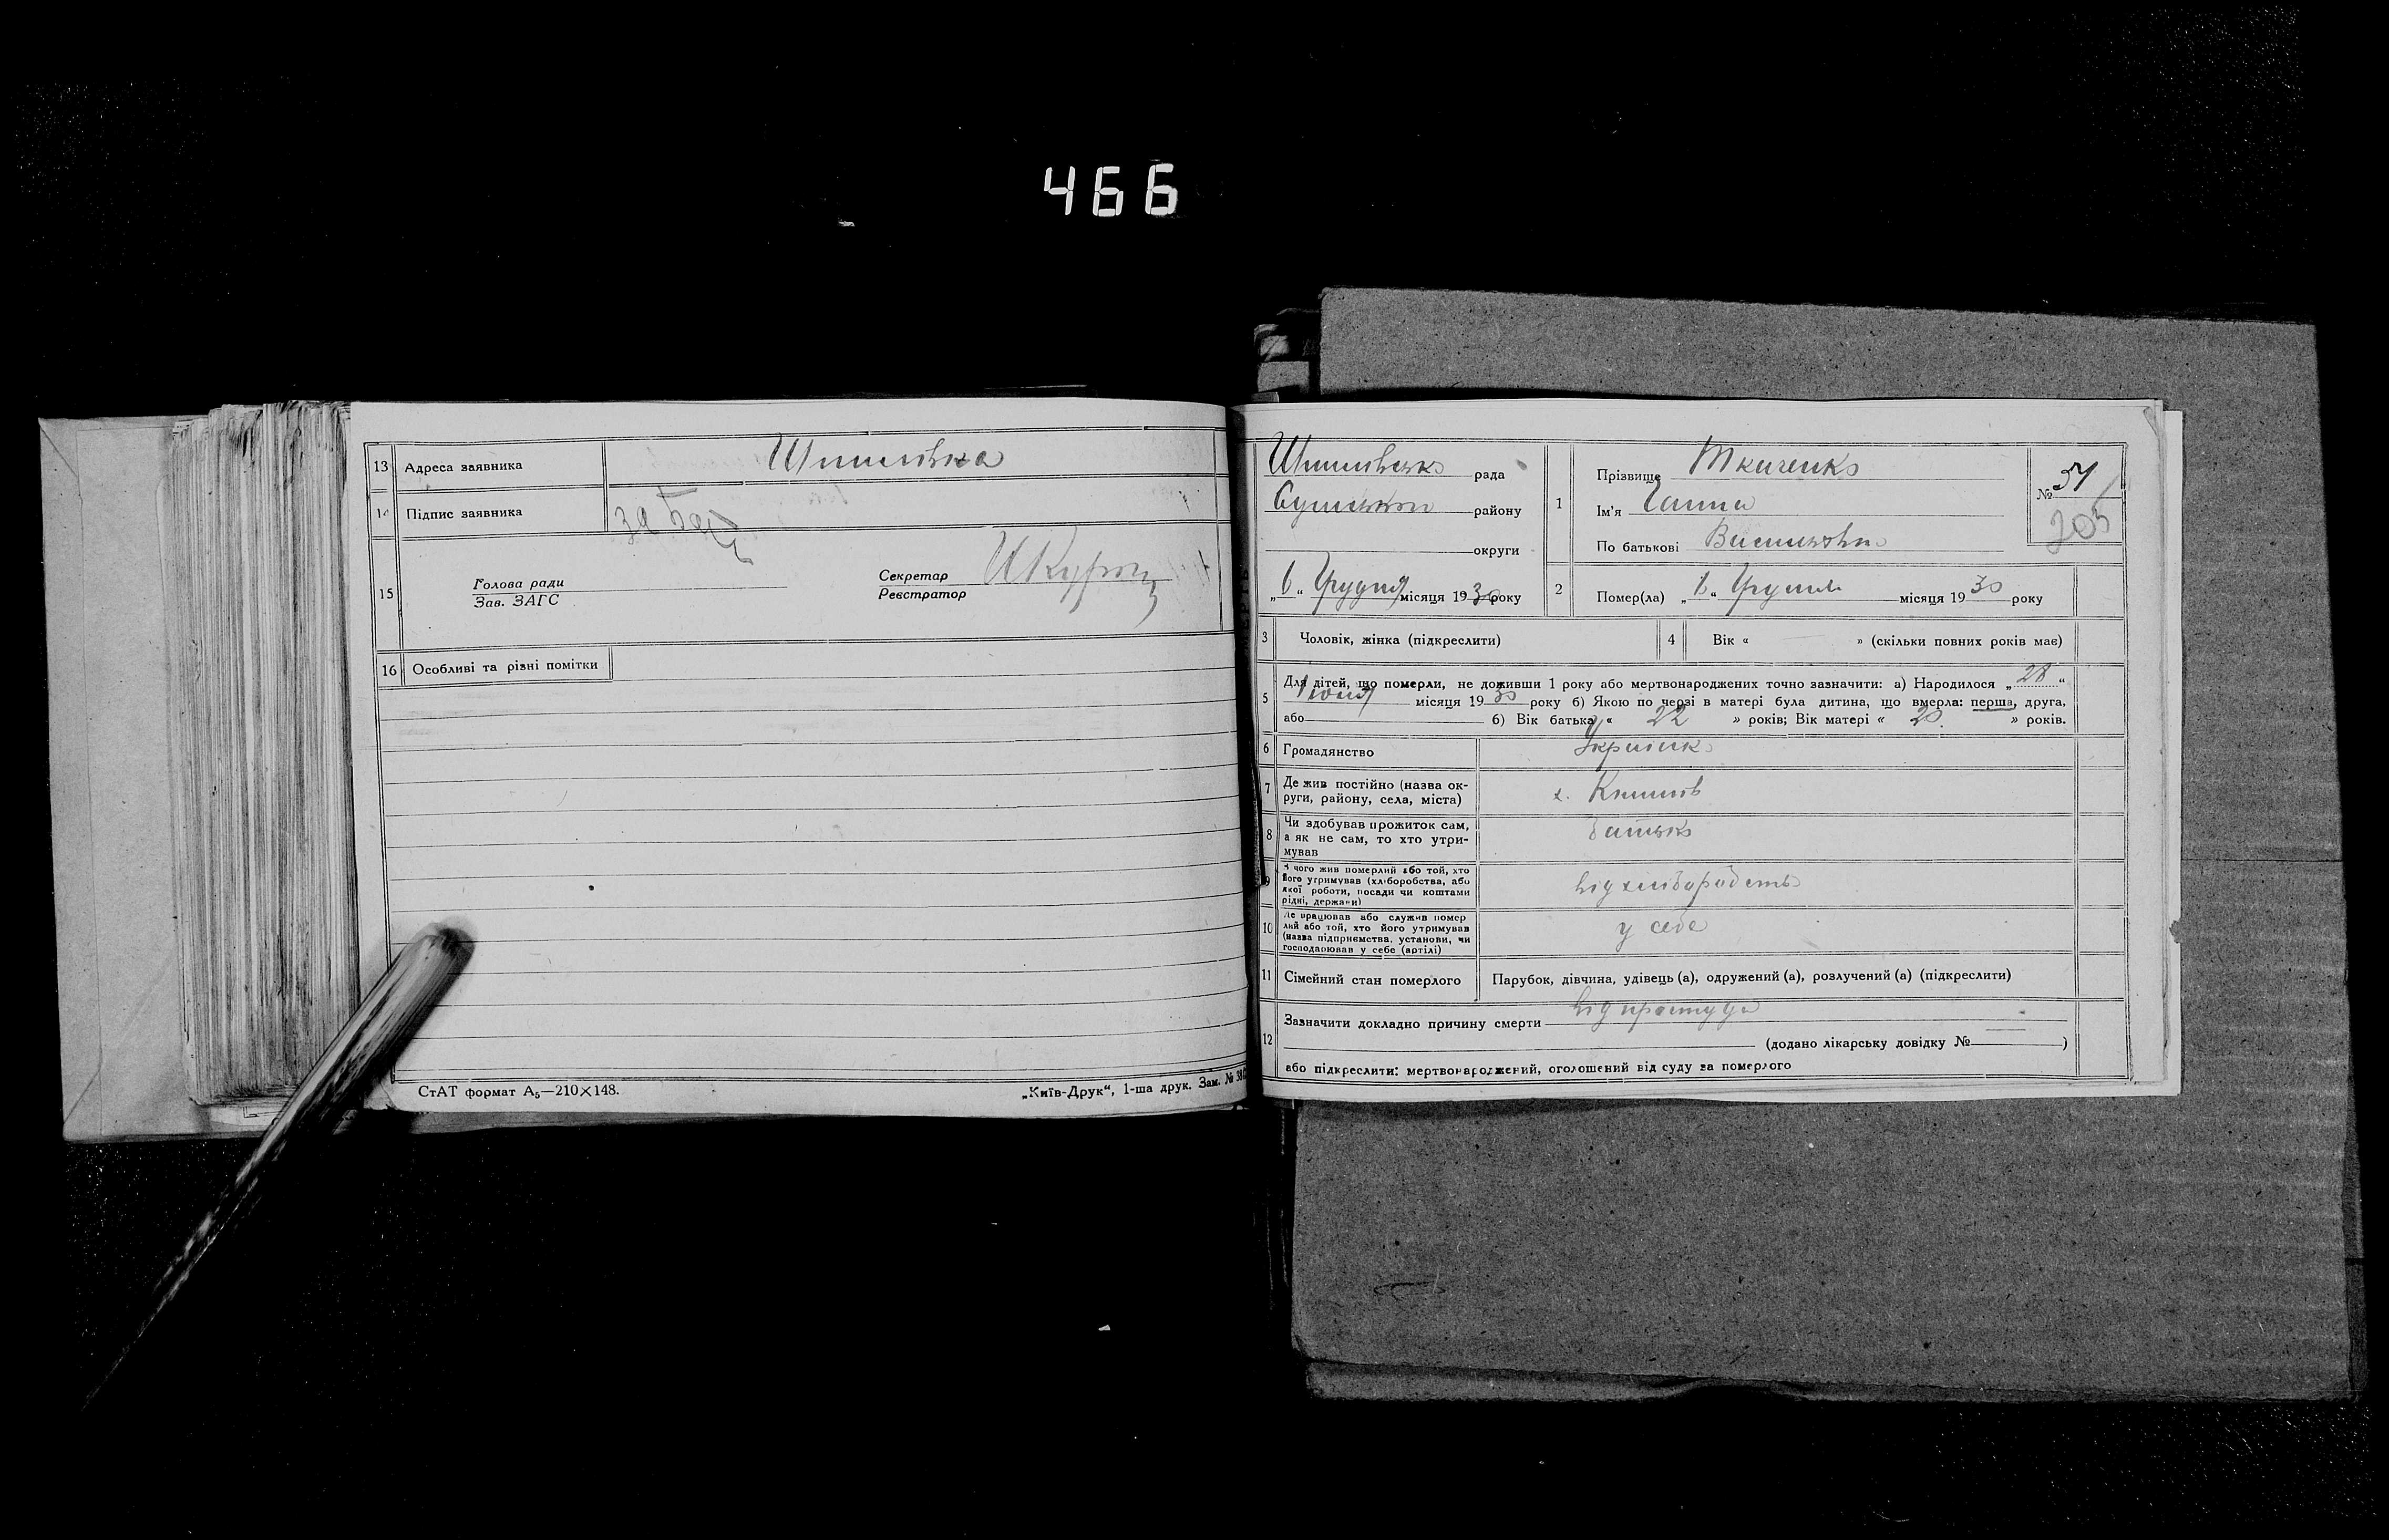 466
13 Адреса заявника Шпилівка
14 Підпис заявника за
15 Голова ради
Зав. ЗАГС
Секретар
Реєстратор
16 Особливі та різні помітки
СтАТ формат А₅—210×148.
„Київ-Друк“, 1-ша друк. Зам. №
Шпилівська рада
Сумського району
округи
„6“ Грудня місяця 1930 року
1 Прізвище Ткаченко
Ім'я Ганна
По батькові Васильовна
№ 51
205
2 Помер(ла) „6“ Грудня місяця 1930 року
3 Чоловік, жінка (підкреслити)
4 Вік « » (скільки повних років має)
5 Для дітей, що померли, не доживши 1 року або мертвонароджених точно зазначити: а) Народилося „28“
місяця 1930 року б) Якою по черзі в матері була дитина, що вмерла: перша, друга,
або б) Вік батька « 22 » років; Вік матері « 20 » років.
6 Громадянство Українка
7 Де жив постійно (назва ок-
руги, району, села, міста) х.
8 Чи здобував прожиток сам,
а як не сам, то хто утри-
мував батько
9 З чого жив померлий або той, хто
його утримував (хліборобства, або
якої роботи, посади чи коштами
рідні, держави) від хліборобства
10 Де працював або служив помер
лий або той, хто його утримував
(назва підприємства, установи, чи
господарював у себе (артілі) у себе
11 Сімейний стан померлого Парубок, дівчина, удівець (а), одружений (а), розлучений (а) (підкреслити)
12 Зазначити докладно причину смерти від простуди
(додано лікарську довідку № )
або підкреслити: мертвонароджений, оголошений від суду за померлого